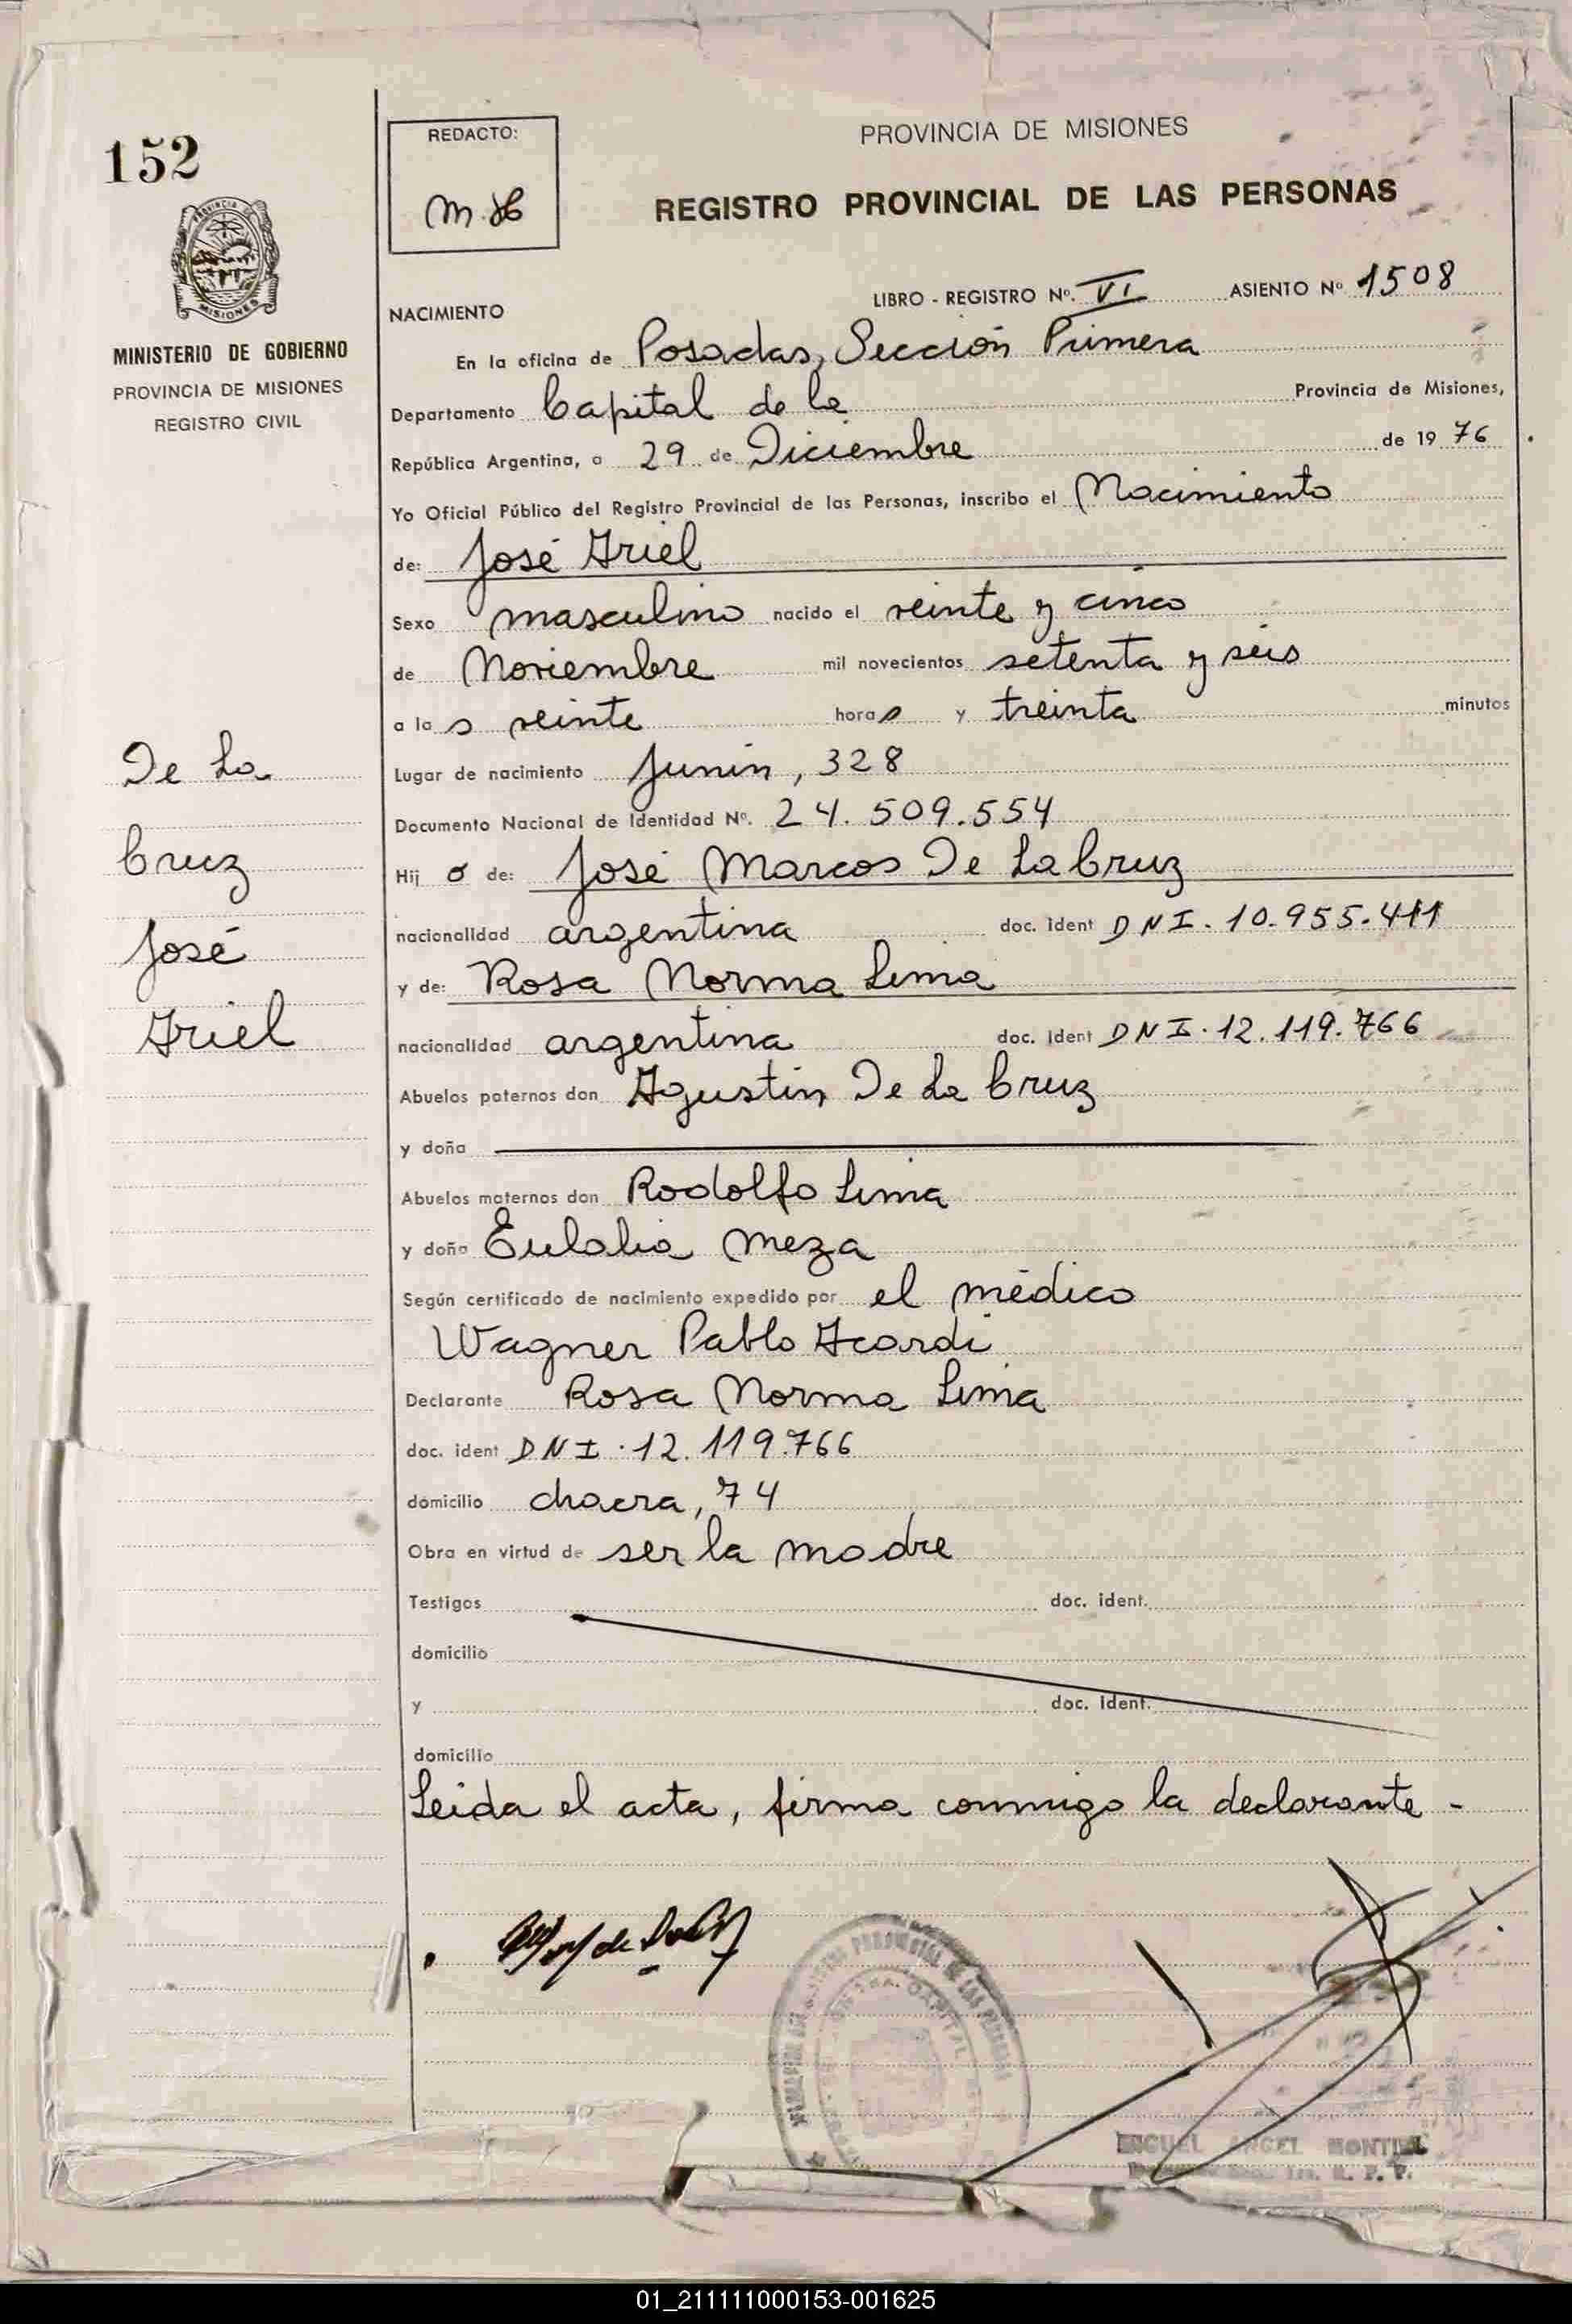 152
REDACTO:
M.H
PROVINCIA DE MISIONES
REGISTRO PROVINCIAL DE LAS PERSONAS
PROVINCIA DE
MISIONES
MINISTERIO DE GOBIERNO
PROVINCIA DE MISIONES
REGISTRO CIVIL
LIBRO - REGISTRO Nº. VI ASIENTO Nº 1508
NACIMIENTO
En la oficina de Posadas, Sección Primera
Departamento Capital de la Provincia de Misiones,
República Argentina, a 29 de Diciembre de 1976
Yo Oficial Público del Registro Provincial de las Personas, inscribo el Nacimiento
de: José Ariel
Sexo masculino nacido el veinte y cinco
de Noviembre mil novecientos setenta y seis
a las veinte horas y treinta minutos
Lugar de nacimiento Junín, 328
Documento Nacional de Identidad Nº. 24.509.554
Hijo de: José Marcos De La Cruz
nacionalidad argentina doc. ident DNI. 10.955.411
y de: Rosa Norma Lima
nacionalidad argentina doc. ident DNI. 12.119.766
Abuelos paternos don Agustín De La Cruz
y doña
Abuelos maternos don Rodolfo Lima
y doña Eulalia Meza
Según certificado de nacimiento expedido por el médico
Wagner Pablo Acardi
Declarante Rosa Norma Lima
doc. ident DNI. 12.119.766
domicilio chacra, 74
Obra en virtud de ser la madre
Testigos doc. ident.
domicilio
y doc. ident.
domicilio
Leida el acta, firma conmigo la declarante -
De La
Cruz
José
Ariel
PROVINCIAL DE LAS PERSONAS
CAPITAL
MIGUEL ANGEL MONTIEL
R. P. P.
01_211111000153-001625